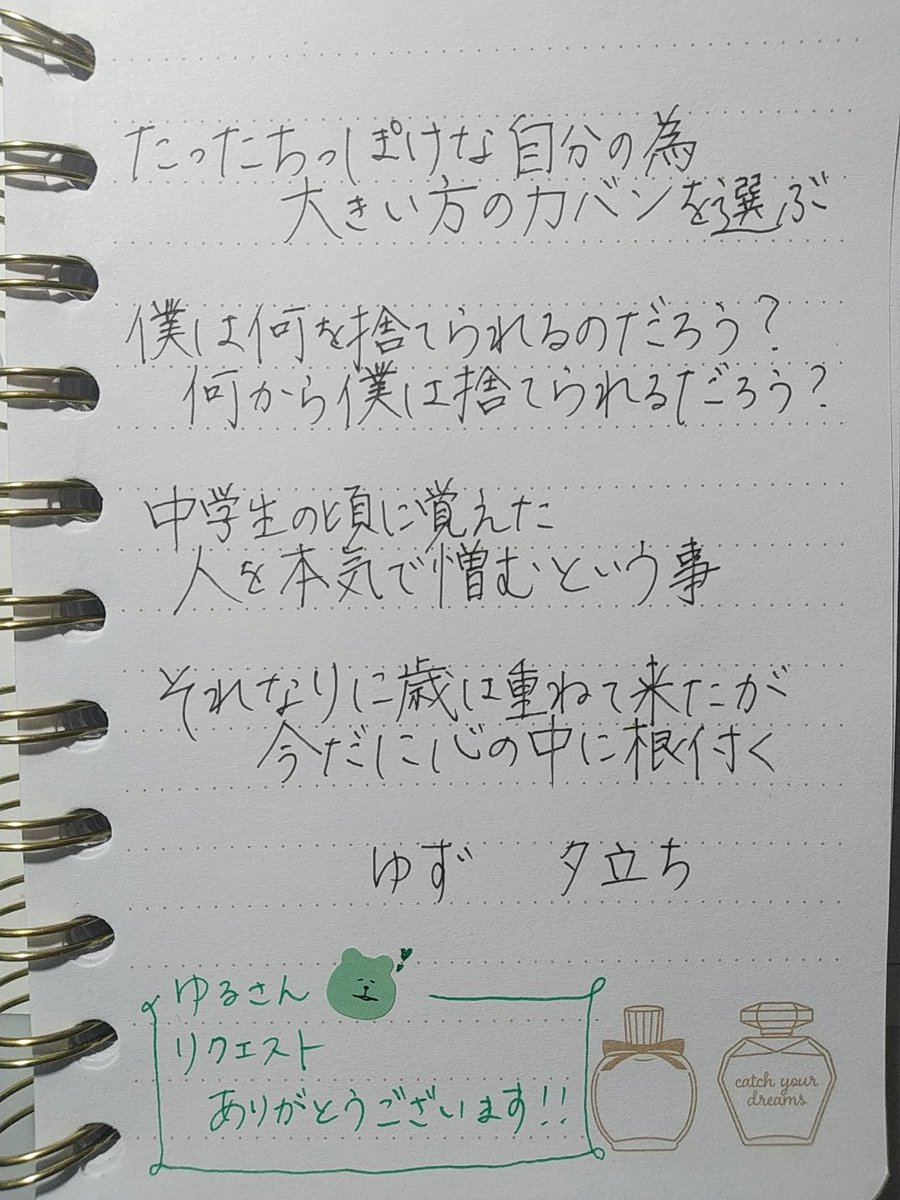 たったちっぽけな自分の為
大きい方のカバンを選ぶ
僕は何を捨てられるのだろう?
何から僕は捨てられるだろう?
中学生の頃に覚えた
人を本気で憎むという事
それなりに歳は重ねて来たが
今だに心の中に根付く
ゆず 夕立ち
ゆるさん
リクエスト
ありがとうございます!!
catch your
dreams